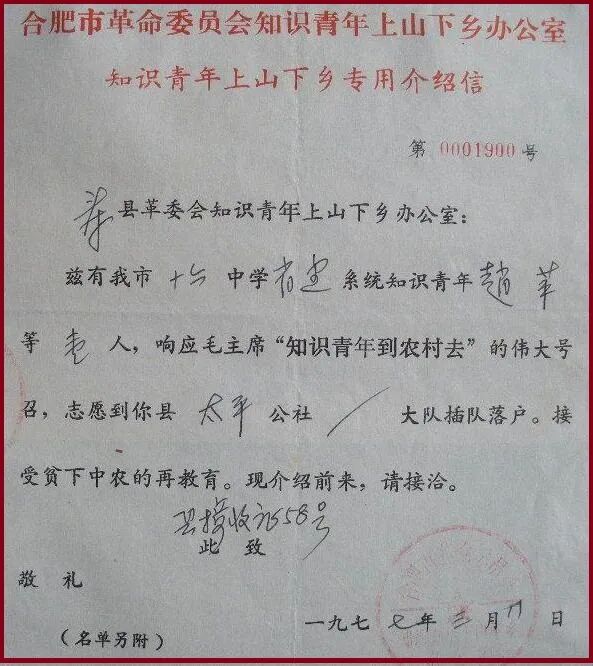 合肥市革命委员会知识青年上山下乡办公室
知识青年上山下乡专用介绍信
第 0001900 号
寿县革委会知识青年上山下乡办公室:
兹有我市 十六 中学 省建 系统知识青年 赵苹
等 壱 人，响应毛主席“知识青年到农村去”的伟大号
召，志愿到你县 太平 公社 / 大队插队落户。接
受贫下中农的再教育。现介绍前来，请接洽。
县接收证58号
此 致
敬 礼
一九七 七 年 三 月 日
(名单另附)